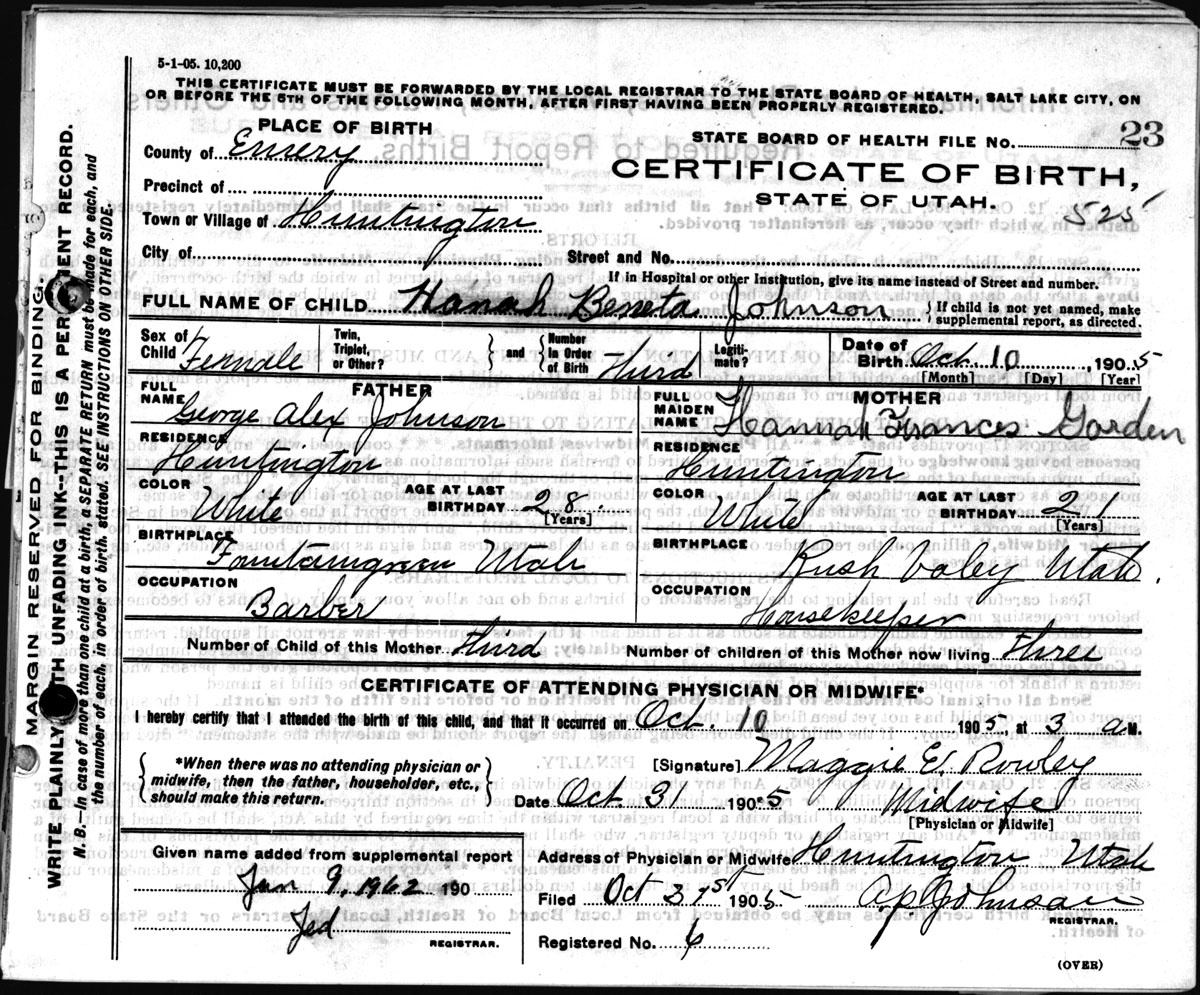 5-1-05. 10,200
THIS CERTIFICATE MUST BE FORWARDED BY THE LOCAL REGISTRAR TO THE STATE BOARD OF HEALTH, SALT LAKE CITY, ON
OR BEFORE THE 5TH OF THE FOLLOWING MONTH, AFTER FIRST HAVING BEEN PROPERLY REGISTERED.
PLACE OF BIRTH
STATE BOARD OF HEALTH FILE No. 23
County of Emery
CERTIFICATE OF BIRTH,
Precinct of
STATE OF UTAH. 525
Town or Village of Huntington
City of Street and No.
If in Hospital or other Institution, give its name instead of Street and number.
FULL NAME OF CHILD Hanah Beneta Johnson { If child is not yet named, make
supplemental report, as directed.
Sex of Child Female
Twin, Triplet, or Other?
} and { Number in Order of Birth Third
Legiti- mate?
Date of Birth Oct. 10, 1905
[Month] [Day] [Year]
FATHER
FULL NAME George Alex Johnson
RESIDENCE
Huntington
COLOR White
AGE AT LAST BIRTHDAY 28
[Years]
BIRTHPLACE
Fountaingreen Utah
OCCUPATION
Barber
MOTHER
FULL MAIDEN NAME Hannah Frances Gorden
RESIDENCE
Huntington
COLOR White
AGE AT LAST BIRTHDAY 21
[Years]
BIRTHPLACE
Rush Valey Utah.
OCCUPATION
Housekeeper
Number of Child of this Mother Third Number of children of this Mother now living Three
CERTIFICATE OF ATTENDING PHYSICIAN OR MIDWIFE*
I hereby certify that I attended the birth of this child, and that it occurred on Oct. 10 1905, at 3 a M.
{ *When there was no attending physician or
midwife, then the father, householder, etc.,
should make this return. }
[Signature] Maggie E. Rowley
Date Oct 31 1905 Midwife
[Physician or Midwife]
Given name added from supplemental report
Jan 9, 1962 190
REGISTRAR.
Address of Physician or Midwife Huntington Utah
Filed Oct 31st 1905 A.P. Johnson
REGISTRAR.
Registered No. 6
(OVER)
MARGIN RESERVED FOR BINDING.
WRITE PLAINLY WITH UNFADING INK--THIS IS A PERMANENT RECORD.
N. B.—In case of more than one child at a birth, a SEPARATE RETURN must be made for each, and
the number of each, in order of birth, stated. SEE INSTRUCTIONS ON OTHER SIDE.